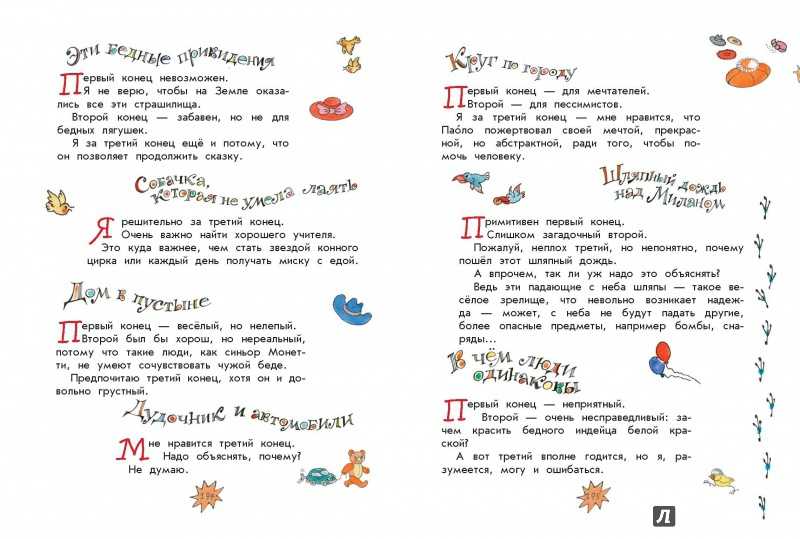 Эти бедные привидения
Первый конец невозможен.
Я не верю, чтобы на Земле оказа-
лись все эти страшилища.
Второй конец — забавен, но не для
бедных лягушек.
Я за третий конец ещё и потому, что
он позволяет продолжить сказку.
Собачка,
которая не умела лаять
Я решительно за третий конец.
Очень важно найти хорошего учителя.
Это куда важнее, чем стать звездой конного
цирка или каждый день получать миску с едой.
Дом в пустыне
Первый конец — весёлый, но нелепый.
Второй был бы хорош, но нереальный,
потому что такие люди, как синьор Монет-
ти, не умеют сочувствовать чужой беде.
Предпочитаю третий конец, хотя он и до-
вольно грустный.
Дудочник и автомобили
Мне нравится третий конец.
Надо объяснять, почему?
Не думаю.
194
Круг по городу
Первый конец — для мечтателей.
Второй — для пессимистов.
Я за третий конец — мне нравится, что
Паоло пожертвовал своей мечтой, прекрас-
ной, но абстрактной, ради того, чтобы по-
мочь человеку.
Шляпный дождь
над Миланом
Примитивен первый конец.
Слишком загадочный второй.
Пожалуй, неплох третий, но непонятно, почему
пошёл этот шляпный дождь.
А впрочем, так ли уж надо это объяснять?
Ведь эти падающие с неба шляпы — такое ве-
сёлое зрелище, что невольно возникает надеж-
да — может, с неба не будут падать другие,
более опасные предметы, например бомбы, сна-
ряды...
В чём люди
одинаковы
Первый конец — неприятный.
Второй — очень несправедливый: за-
чем красить бедного индейца белой крас-
кой?
А вот третий вполне годится, но я, ра-
зумеется, могу и ошибаться.
195
Л